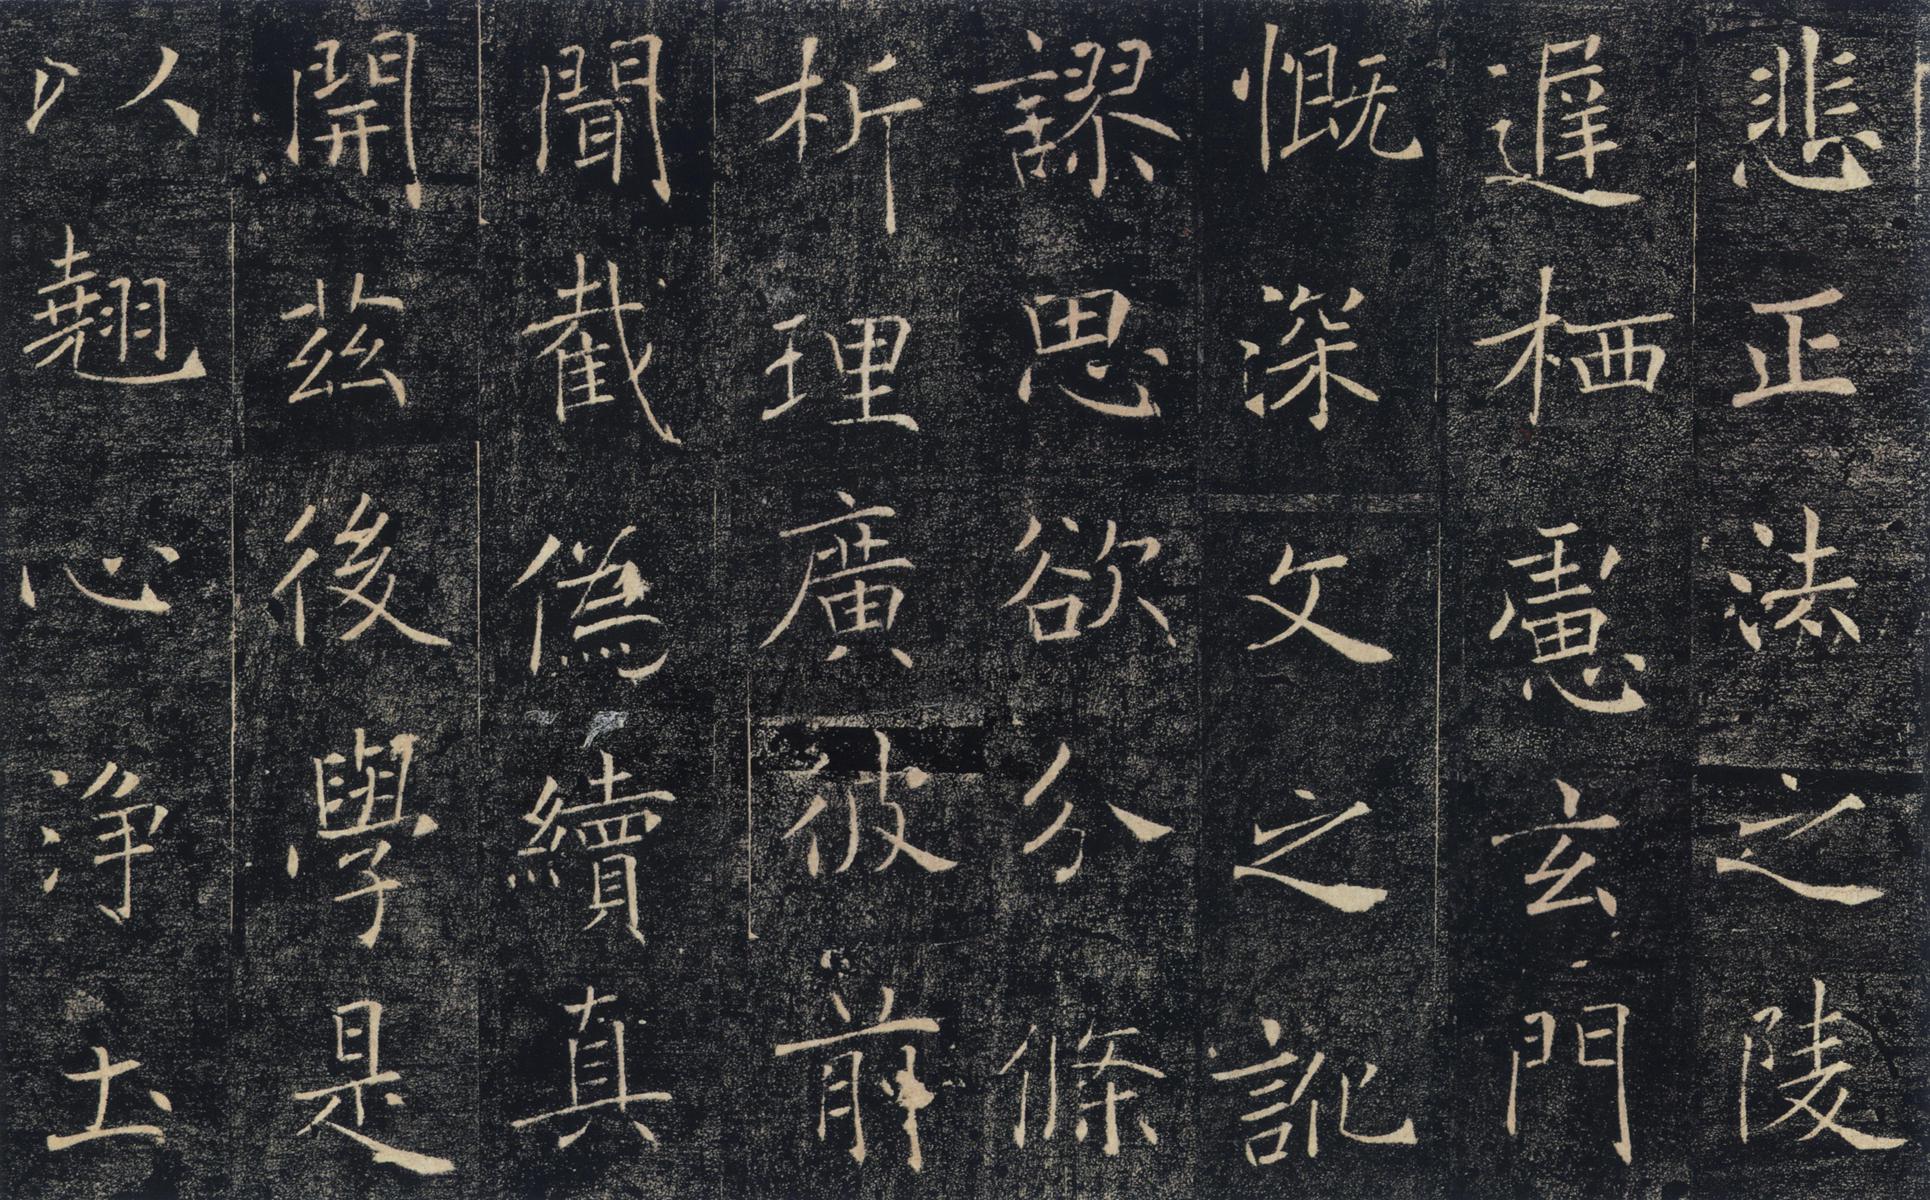 悲正法之陵
遲栖慮玄門
慨深文之訛
謬思欲分條
析理廣彼前
聞截偽續真
開茲後學是
以翹心浄土